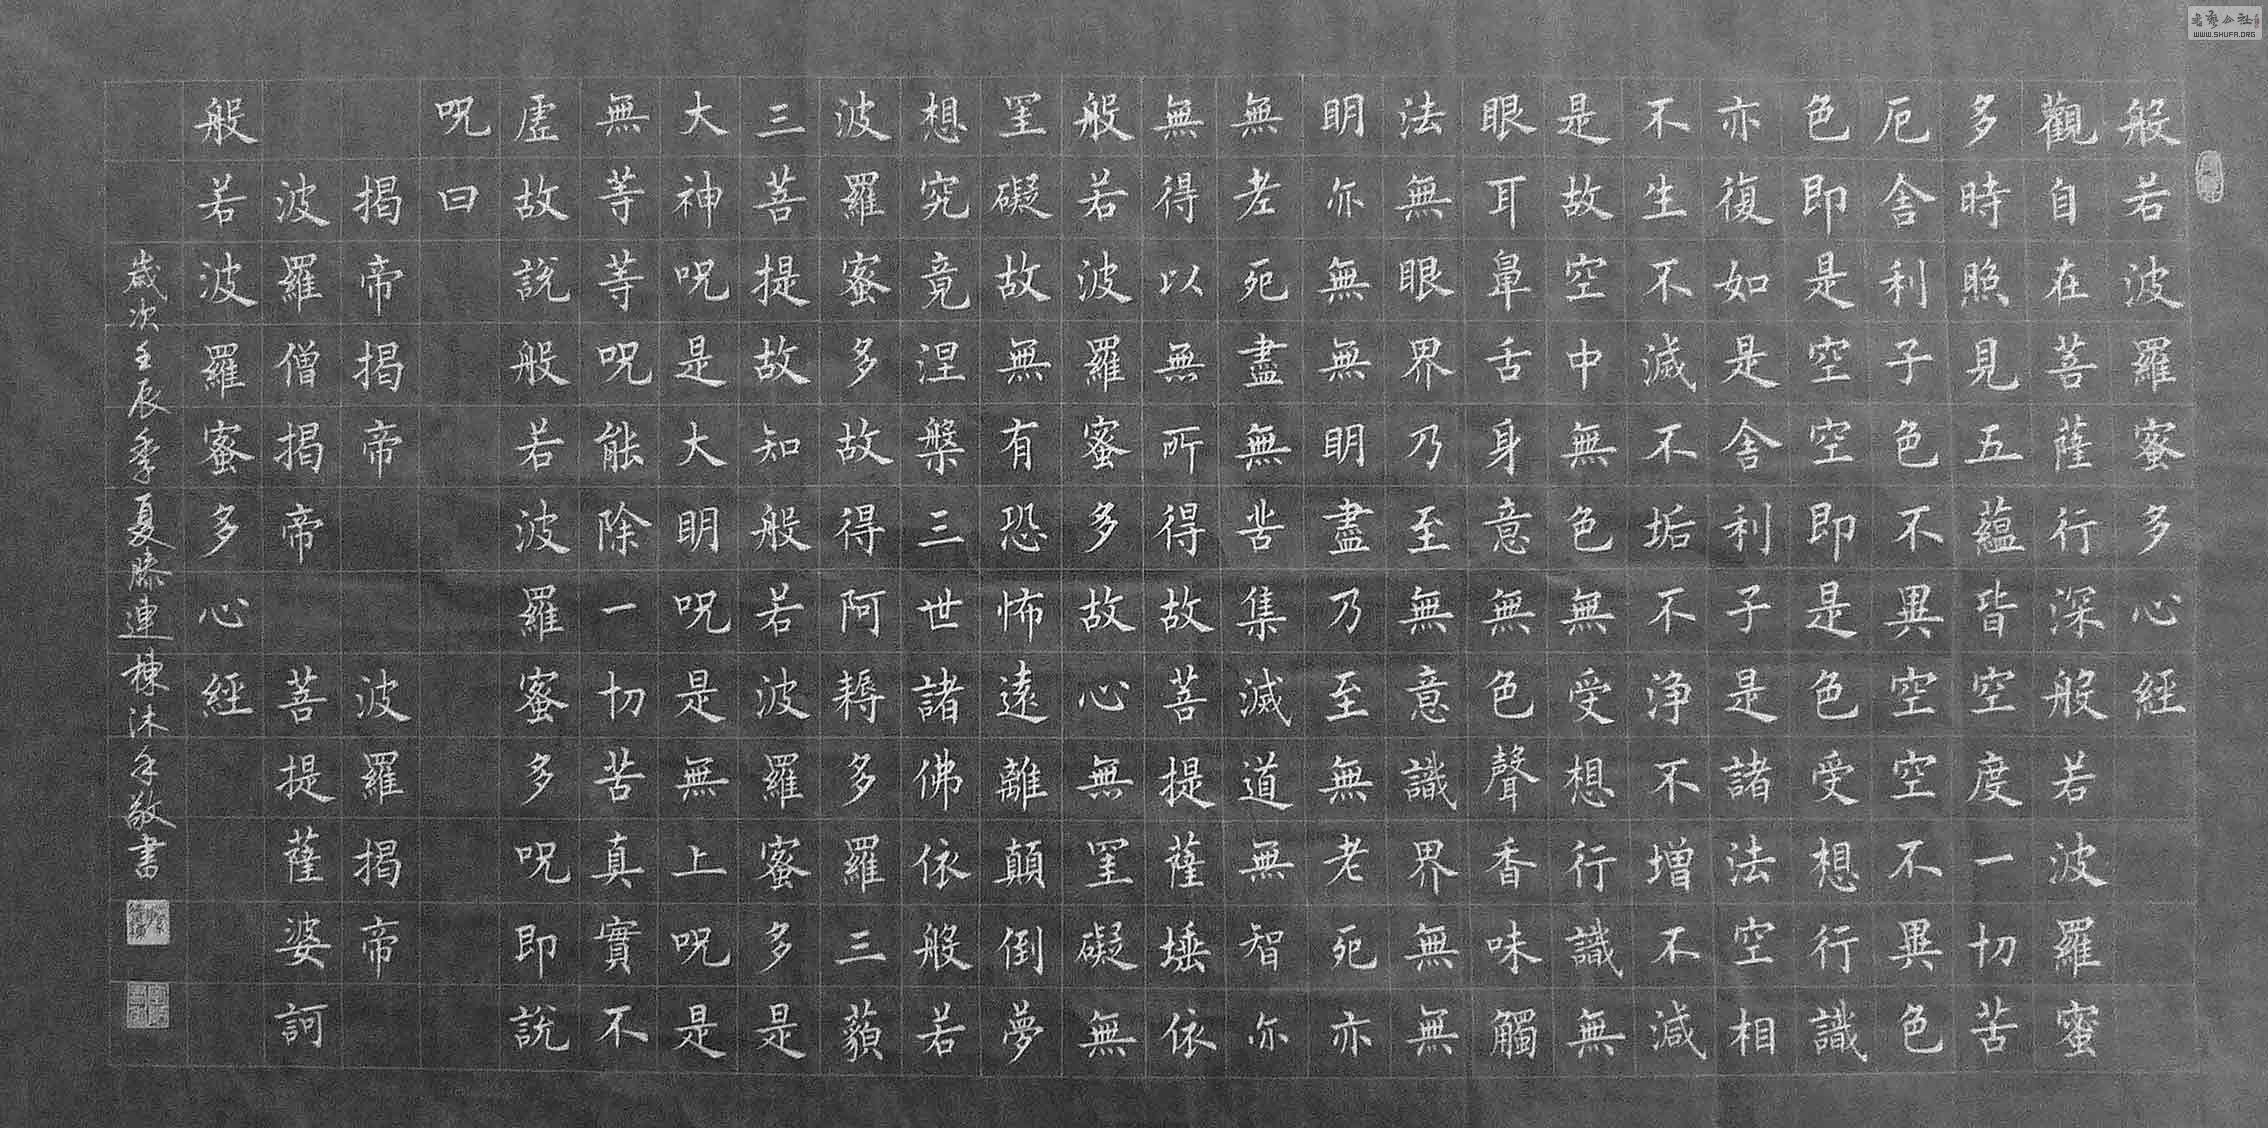 般若波羅蜜多心經
觀自在菩薩行深般若波羅蜜
多時照見五蘊皆空度一切苦
厄舍利子色不異空空不異色
色即是空空即是色受想行識
亦復如是舍利子是諸法空相
不生不滅不垢不淨不增不減
是故空中無色無受想行識無
眼耳鼻舌身意無色聲香味觸
法無眼界乃至無意識界無無
明亦無無明盡乃至無老死亦
無老死盡無苦集滅道無智亦
無得以無所得故菩提薩埵依
般若波羅蜜多故心無罣礙無
罣礙故無有恐怖遠離顛倒夢
想究竟涅槃三世諸佛依般若
波羅蜜多故得阿耨多羅三藐
三菩提故知般若波羅蜜多是
大神呪是大明呪是無上呪是
無等等呪能除一切苦真實不
虛故說般若波羅蜜多呪即說
呪曰
揭帝揭帝 波羅揭帝
波羅僧揭帝 菩提薩婆訶
般若波羅蜜多心經
歲次壬辰季夏滕連棟沐手敬書
WWW.SHUFA.ORG